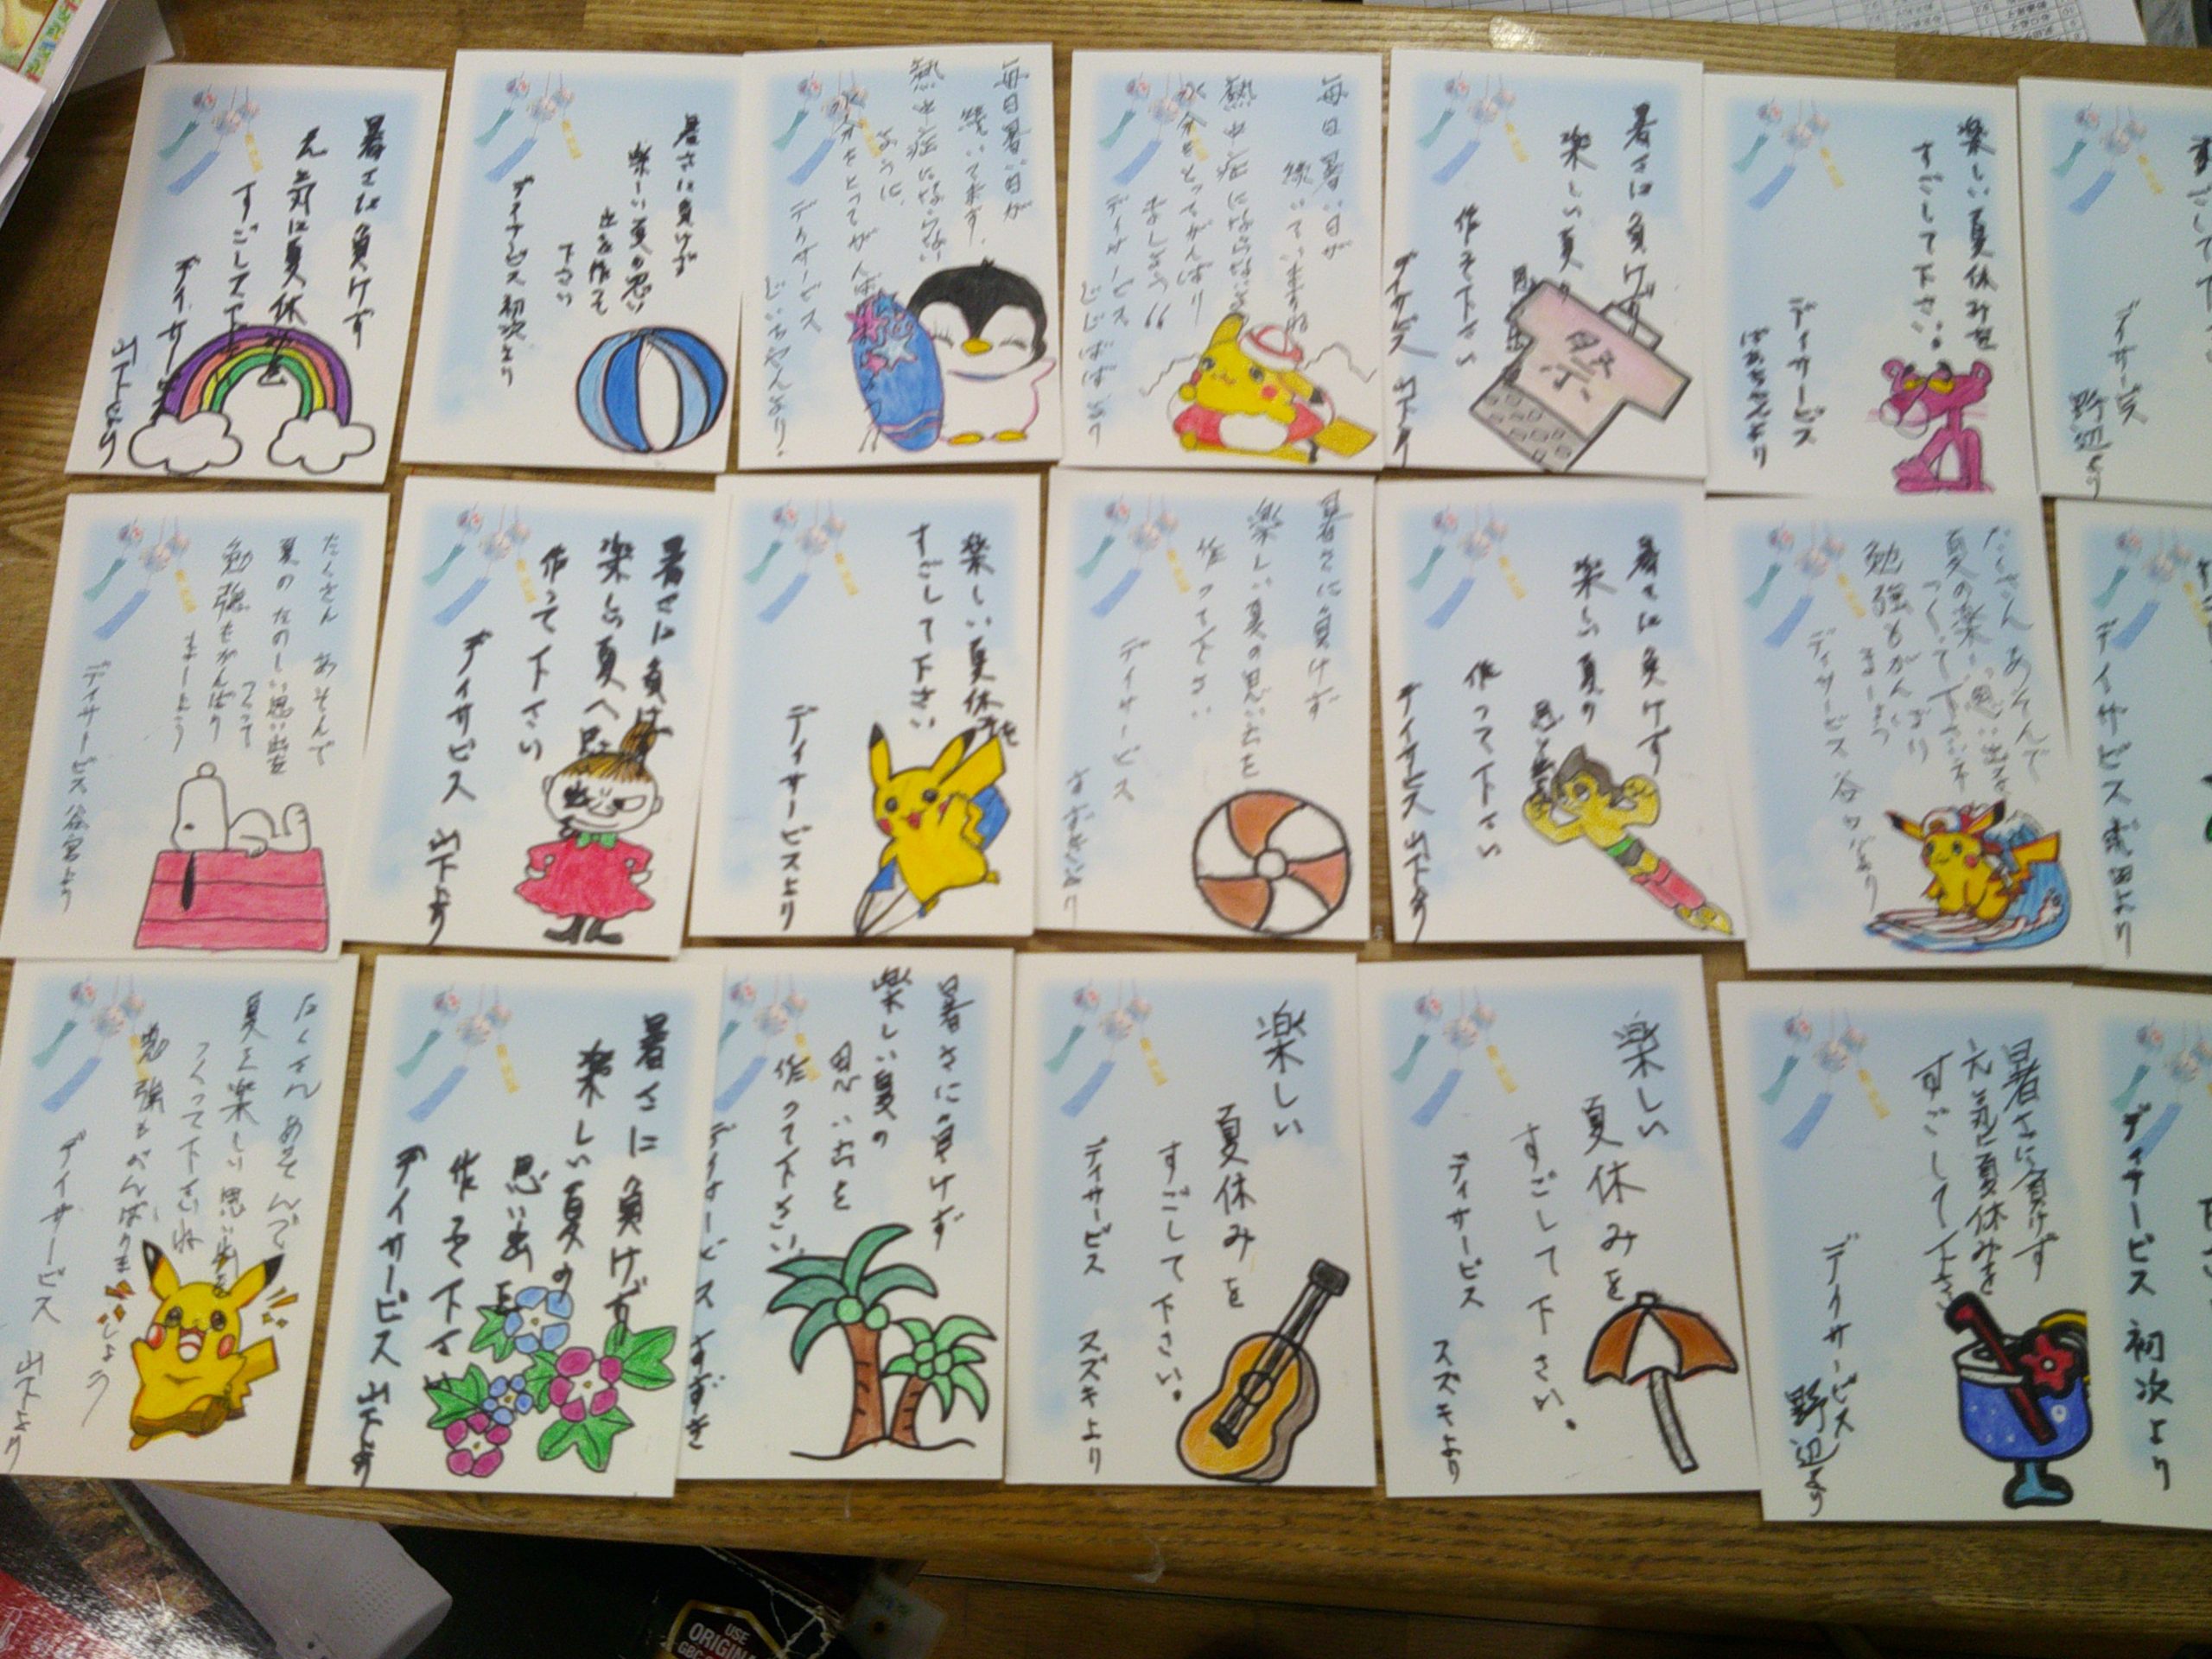 暑さに負けず
元気に夏休みを
すごして下
デイサー
山下より
暑さに負けず
楽しい夏の思い
出を作って
下さい
デイサービス 初次より
毎日暑い日が
続いて来ます。
熱中症にならない
ように、
水分をとってがんば
デイサービス
じいちゃんより!
毎日暑い日が
続いていますね
熱中症にならない
水分をとってがんばり
ましょう
デイサービス
じじばばより
暑さに負けず
楽しい夏の
思い出
作って下さい
デイサービス 山下より
楽しい夏休みを
すごして下さい。
デイサービス
ばあちゃんより
すごして下
デイサービス
野辺より
たくさん あそんで
夏の たのしい思い出を
つくって
勉強もがんばり
ましょう
デイサービス 谷宮より
暑さに負け
楽しい夏
作って下さい
デイサービス 山下より
楽しい夏休みを
すごして下さい
デイサービスより
暑さに負けず
楽しい夏の思い出を
作って下さい
デイサービス
すずきより
暑さに負けず
楽しい夏の
思い出
作って下さい
デイサービス 山下より
たくさん あそんで
夏の楽しい思い出を
つくって下さいネ
勉強もがんばり
ましょう
デイサービス 谷
デイサービス
より
たくさん あそんで
夏を楽しい思い出を
つくって下さいね
勉強もがんばりま
しょう
デイサービス 山下より
暑さに負けず
楽しい夏の
思い出を
作って下さい
デイサービス 山下より
暑さに負けず
楽しい夏の
思い出を
作って下さい
デイサービス すずき
楽しい
夏休みを
すごして下さい。
デイサービス スズキより
楽しい
夏休みを
すごして下さい。
デイサービス スズキより
暑さに負けず
元気に夏休みを
すごして下さい
デイサービス
野辺より
デイサービス 初次より
祭
USE
ORIGINA
GBC